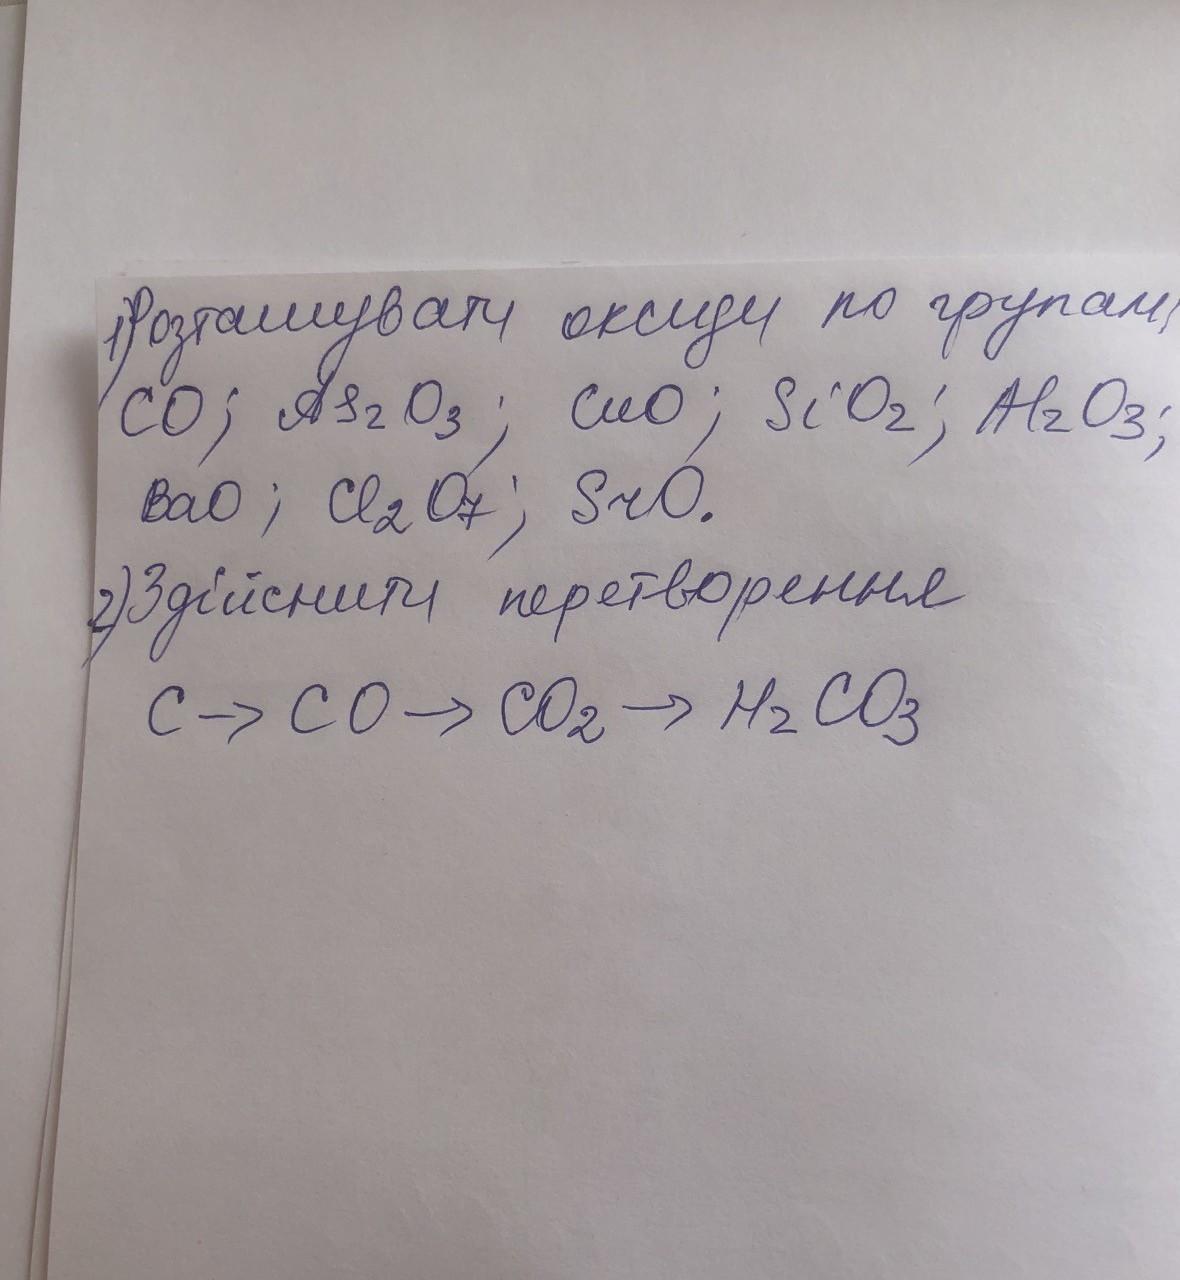 1) Розташувати оксиди по групам
CO; As₂O₃; CuO; SiO₂; Al₂O₃;
BaO; Cl₂O₇; SrO.
2) Здійснити перетворення
C → CO → CO₂ → H₂CO₃